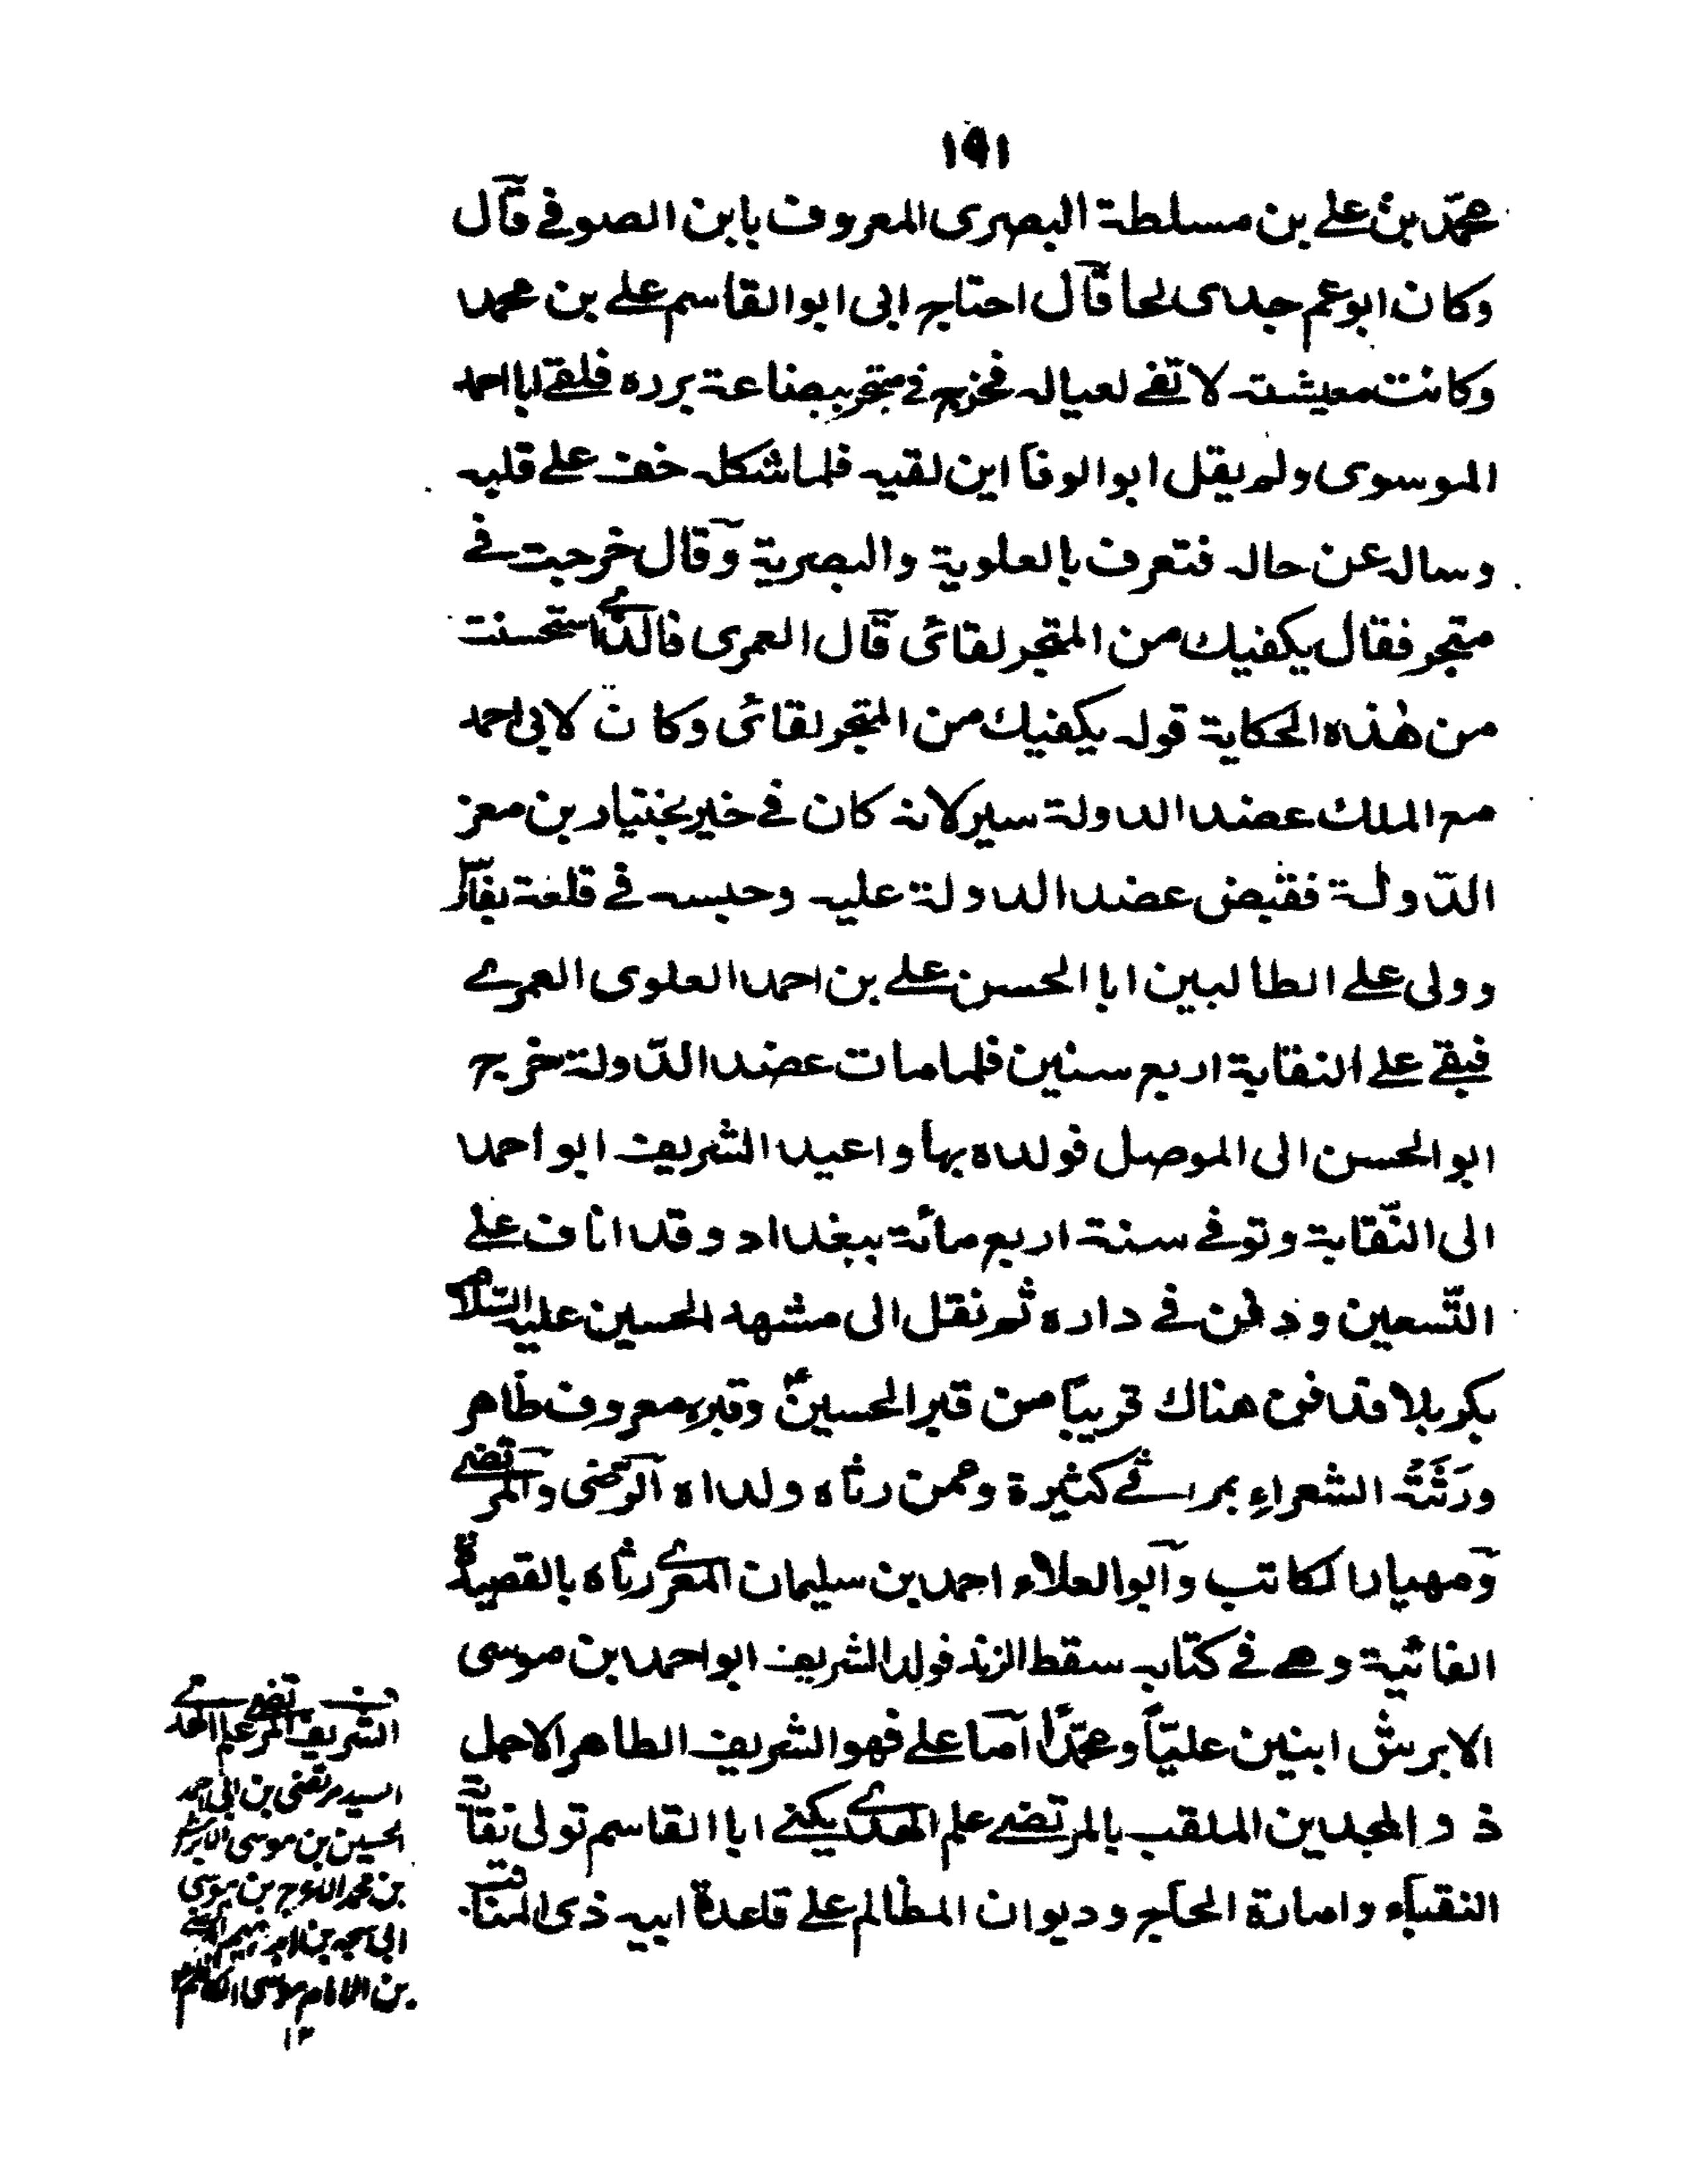 ١٩١
محمّد بن علے بن مسلطة البصرى المعروف بابن الصوفے قال
وكان ابوعم جدى لحا قال احتاج ابى ابوالقاسم علے بن محمد
وكانت معيشته لا تفے لعياله فخرج فے متجر ببضاعة برده فلقے ابا احمد
الموسوى ولم يقل ابوالوفا اين لقيه فلما شكله خف علے قلبه
وساله عن حاله فتعرف بالعلوية والبصرية وقال خرجت فے
متجر فقال يكفيك من المتجر لقائى قال العمرى فالذے استحسنت
من هذه الحكاية قوله يكفيك من المتجر لقائى وكان لابى احمد
مع الملك عضد الدولة سير لانه كان فے خير بختيار بن معز
الدّولة فقبض عضد الدولة عليه وحبسه فے قلعة بفارس
وولى علے الطالبين ابا الحسن علے بن احمد العلوى العمرے
فبقے علے النقابة اربع سنين فلما مات عضد الدّولة خرج
ابوالحسن الى الموصل فولده بها واعيد الشريف ابو احمد
الى النّقابة وتوفے سنة اربع مائة ببغداد وقد اناف علے
التّسعين ودفن فے داره ثم نقل الى مشهد الحسين عليه السّلام
بكربلا فدفن هناك قريبًا من قبر الحسينؑ وقبره معروف ظاهر
ورَثَتْه الشعراءِ بمراثے كثيرة وممن رثاه ولداه الرضى والمرتضے
ومهيار الكاتب وابوالعلاء احمد بن سليمان المعرے رثاه بالقصيدة
الفائية وهے فے كتابه سقط الزند فولد الشريف ابواحمد بن موسى
الابرش ابنين عليّاً ومحمّدًا اما علے فهو الشريف الطاهر الاجل
ذو المجدين الملقب بالمرتضے علم الهدے يكنے ابا القاسم تولى نقابة
النقباء وامارة الحاج وديوان المظالم علے قاعدة ابيه ذى المناقب
الشريف المرتضے علم الهدے
السيد مرتضى بن ابى احمد
الحسين بن موسى الابرش
بن محمد الاعرج بن موسى
ابى سبحه بن ابراهيم
بن الامام موسى الكاظم
١٢